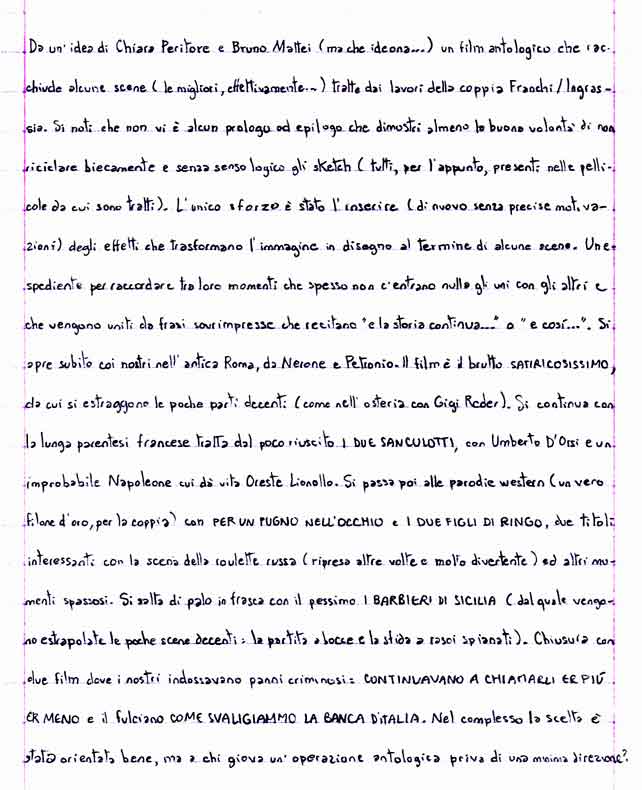 Da un'idea di Chiara Peritore e Bruno Mattei (ma che ideona...) un film antologico che rac-
chiude alcune scene (le migliori, effettivamente...) tratte dai lavori della coppia Franchi/Ingras-
sia. Si noti che non vi è alcun prologo od epilogo che dimostri almeno la buona volontà di non
riciclare biecamente e senza senso logico gli sketch (tutti, per l'appunto, presenti nelle pelli-
cole da cui sono tratti). L'unico sforzo è stato l'inserire (di nuovo senza precise motiva-
zioni) degli effetti che trasformano l'immagine in disegno al termine di alcune scene. Un e-
spediente per raccordare tra loro momenti che spesso non c'entrano nulla gli uni con gli altri e
che vengono uniti da frasi sovrimpresse che recitano "e la storia continua..." o "e così...". Si
apre subito coi nostri nell'antica Roma, da Nerone e Petronio. Il film è il brutto SATIRICOSISSIMO,
da cui si estraggono le poche parti decenti (come nell'osteria con Gigi Reder). Si continua con
la lunga parentesi francese tratta dal poco riuscito I DUE SANCULOTTI, con Umberto D'Orsi e un
improbabile Napoleone cui dà vita Oreste Lionello. Si passa poi alle parodie western (un vero
filone d'oro, per la coppia) con PER UN PUGNO NELL'OCCHIO e I DUE FIGLI DI RINGO, due titoli
interessanti con la scena della roulette russa (ripresa altre volte e molto divertente) ed altri mo-
menti spassosi. Si salta di palo in frasca con il pessimo I BARBIERI DI SICILIA (dal quale vengo-
no estrapolate le poche scene decenti: la partita a bocce e la sfida a rasoi spianati). Chiusura con
due film dove i nostri indossavano panni criminosi: CONTINUAVANO A CHIAMARLI ER PIÙ
ER MENO e il fulciano COME SVALIGIAMMO LA BANCA D'ITALIA. Nel complesso la scelta è
stata orientata bene, ma a chi giova un'operazione antologica priva di una minima direzione?